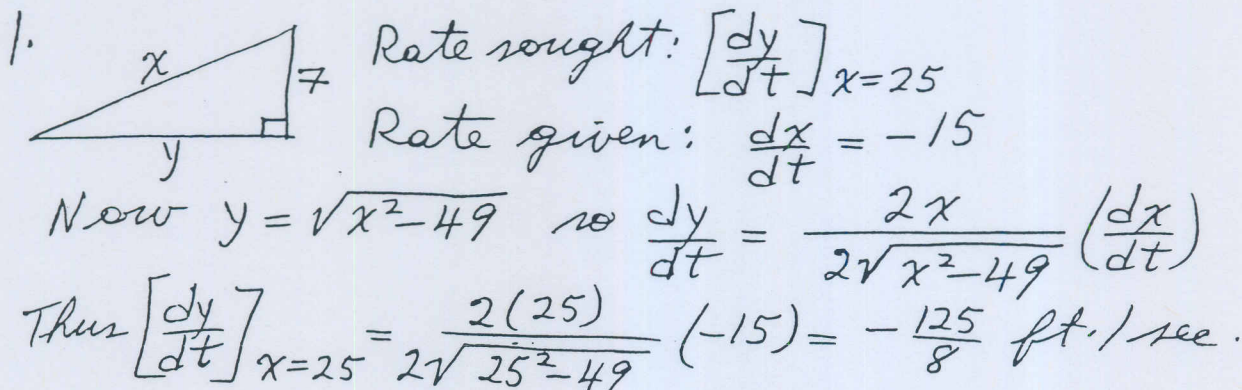 1.
x
7
y
Rate sought: [dy/dt]x=25
Rate given: dx/dt = -15
Now y = √(x²-49) so dy/dt = 2x / 2√(x²-49) (dx/dt)
Thus [dy/dt]x=25 = 2(25) / 2√(25²-49) (-15) = -125/8 ft./sec.